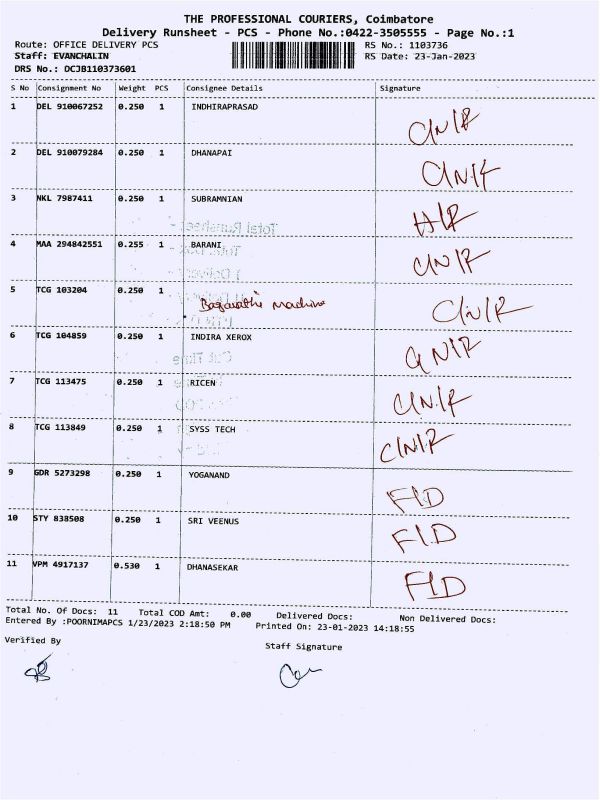 THE PROFESSIONAL COURIERS, Coimbatore
Delivery Runsheet - PCS - Phone No.:0422-3505555 - Page No.:1
Route: OFFICE DELIVERY PCS RS No.: 1103736
Staff: EVANCHALIN RS Date: 23-Jan-2023
DRS No.: DCJB110373601
S No Consignment No Weight PCS Consignee Details Signature
1 DEL 910067252 0.250 1 INDHIRAPRASAD
2 DEL 910079284 0.250 1 DHANAPAI
3 NKL 7987411 0.250 1 SUBRAMNIAN
4 MAA 294842551 0.255 1 BARANI
5 TCG 103204 0.250 1
6 TCG 104859 0.250 1 INDIRA XEROX
7 TCG 113475 0.250 1 RICEN
8 TCG 113849 0.250 1 SYSS TECH
9 GDR 5273298 0.250 1 YOGANAND F/D
10 STY 838508 0.250 1 SRI VEENUS F/D
11 VPM 4917137 0.530 1 DHANASEKAR F/D
Total No. Of Docs: 11 Total COD Amt: 0.00 Delivered Docs: Non Delivered Docs:
Entered By :POORNIMAPCS 1/23/2023 2:18:50 PM Printed On: 23-01-2023 14:18:55
Verified By Staff Signature